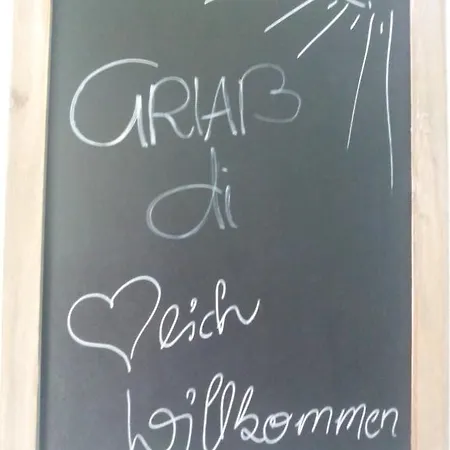 GRIAß
di
♡eich
Willkommen